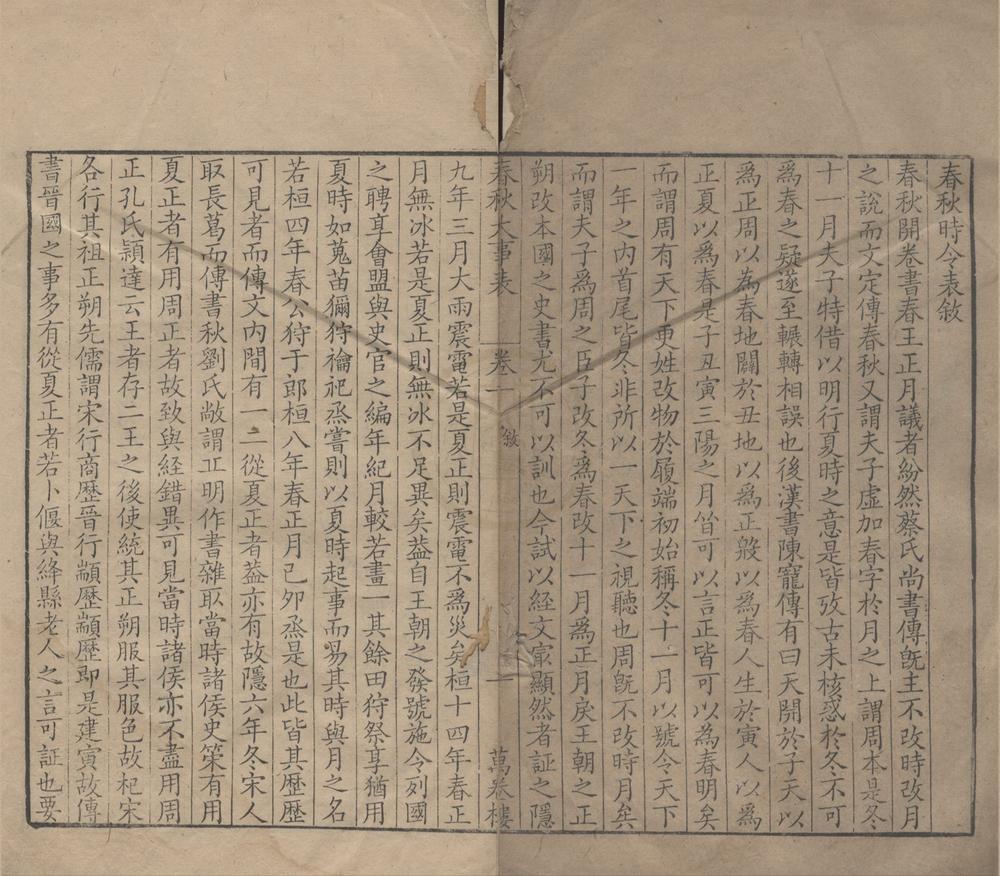 春秋時令表敘
春秋開卷書春王正月議者紛然蔡氏尚書傳旣主不改時改月
之說而文定傳春秋又謂夫子虛加春字於月之上謂周本是冬
十一月夫子特借以明行夏時之意是皆攷古未核惑於冬不可
爲春之疑遂至輾轉相誤也後漢書陳寵傳有曰天開於子天以
爲正周以為春地闢於丑地以爲正殷以爲春人生於寅人以爲
正夏以爲春是子丑寅三陽之月皆可以言正皆可以為春明矣
而謂周有天下更姓改物於履端初始稱冬十一月以號令天下
一年之內首尾皆冬非所以一天下之視聽也周旣不改時月矣
而謂夫子爲周之臣子改冬爲春改十一月爲正月戾王朝之正
朔改本國之史書尤不可以訓也今試以経文㝡顯然者証之隱
春秋大事表 卷一 敘 一 萬卷樓
九年三月大雨震電若是夏正則震電不爲災矣桓十四年春正
月無冰若是夏正則無冰不足異矣葢自王朝之發號施令列國
之聘享會盟與史官之編年紀月較若畫一其餘田狩祭享猶用
夏時如蒐苗獮狩禴祀烝嘗則以夏時起事而易其時與月之名
若桓四年春公狩于郎桓八年春正月己卯烝是也此皆其歷歷
可見者而傳文內間有一二從夏正者葢亦有故隱六年冬宋人
取長葛而傳書秋劉氏敞謂丘明作書雜取當時諸侯史策有用
夏正者有用周正者故致與経錯異可見當時諸侯亦不盡用周
正孔氏穎達云王者存二王之後使統其正朔服其服色故杞宋
各行其祖正朔先儒謂宋行商歷晉行顓歷顓歷即是建寅故傳
書晉國之事多有從夏正者若卜偃與絳縣老人之言可証也要